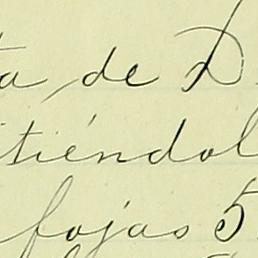 ta, de D
itiéndol
fojas 5